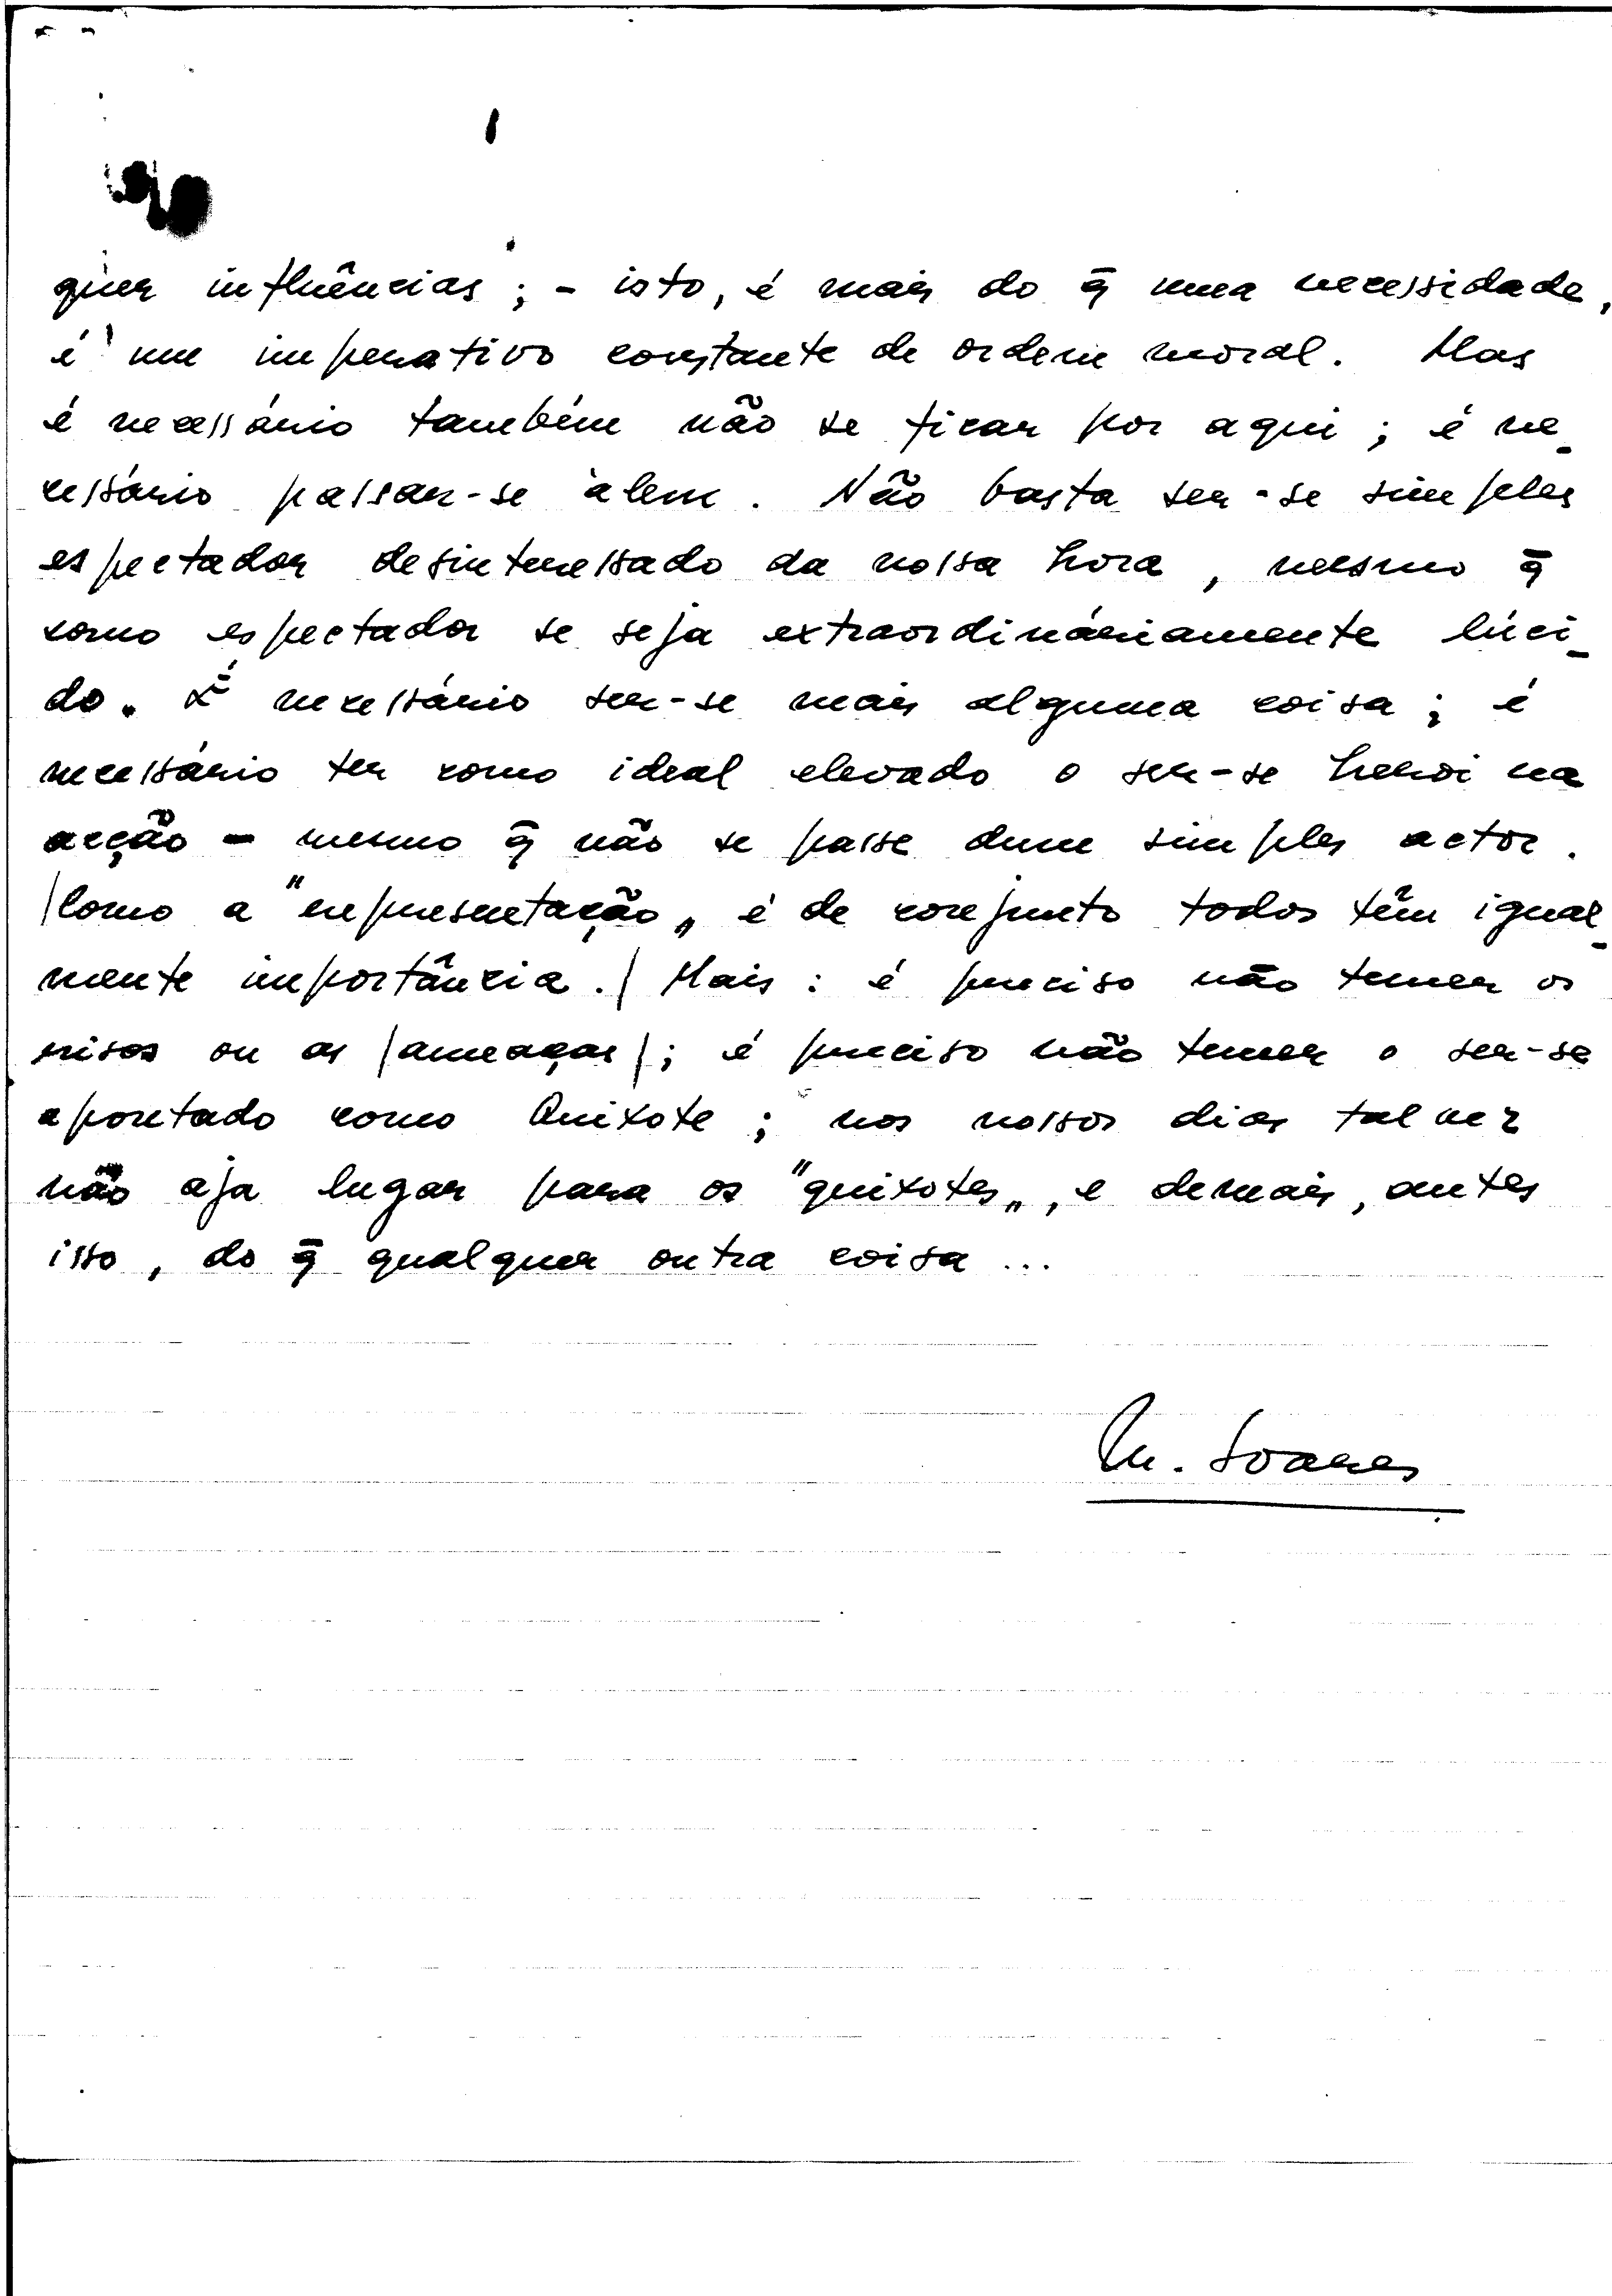 quer influências ; - isto, é mais do q̄ uma necessidade,
é um imperativo constante de ordem moral. Mas
é necessário também não se ficar por aqui ; é ne-
cessário passar-se àlem. Não basta ser-se simples
espectador desinteressado da nossa hora, mesmo q̄
como espectador se seja extraordináriamente lúci-
do. É necessário ser-se mais alguma coisa ; é
necessário ter como ideal elevado o ser-se heroi na
acção - mesmo q̄ não se passe dum simples actor.
(Como a "representação„ é de conjunto todos têm igual-
mente importância.) Mais : é preciso não temer os
risos ou as (ameaças) ; é preciso não temer o ser-se
apontado como Quixote ; nos nossos dias talvez
não aja lugar para os "quixotes„, e demais, antes
isso, do q̄ qualquer outra coisa ...
M. Soares